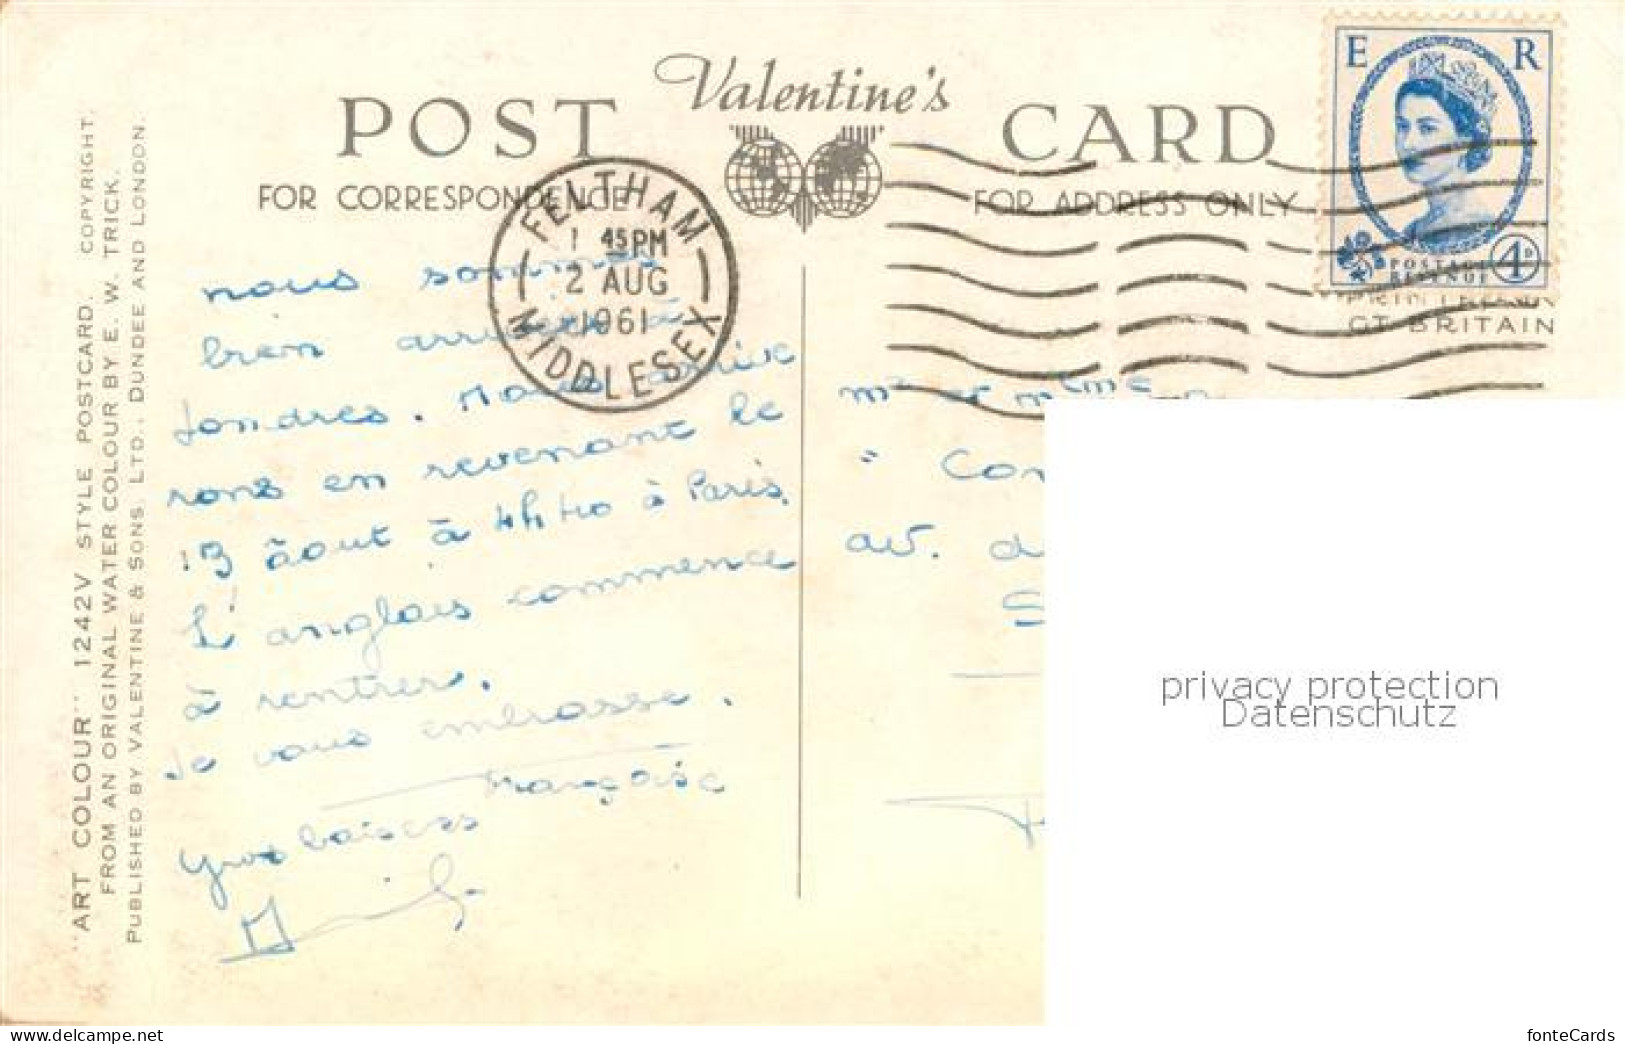 Valentine's
POST CARD
FOR CORRESPONDENCE
FOR ADDRESS ONLY
E R
POSTAGE
REVENUE
4D
GT. BRITAIN
FELTHAM
1 45 PM
2 AUG
1961
MIDDLESEX
"ART COLOUR" 1242V STYLE POSTCARD. COPYRIGHT.
FROM AN ORIGINAL WATER COLOUR BY E. W. TRICK.
PUBLISHED BY VALENTINE & SONS, LTD., DUNDEE AND LONDON.
nous sommes
bien arrivés à
Londres. Nous arrive
rons en revenant le
13 août à 4h40 à Paris.
L'anglais commence
à rentrer.
Je vous embrasse.
Françoise
gros baisers
Mr et Mme
" Con
av. d
S
privacy protection
Datenschutz
www.delcampe.net
fonteCards